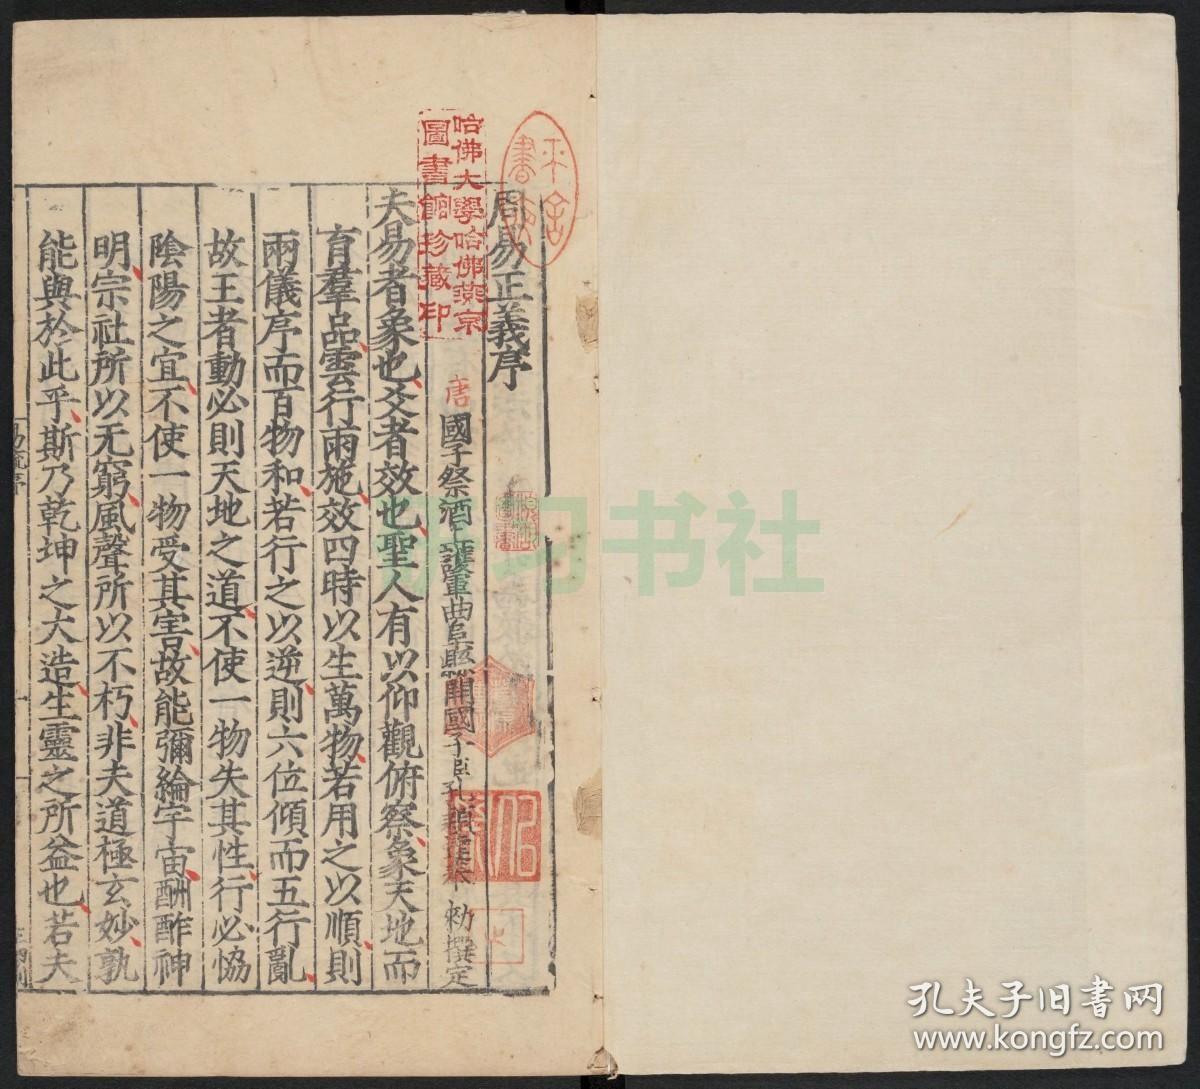 周易正義序
唐國子祭酒上護軍曲阜縣開國子臣孔穎達奉 勑撰定
夫易者象也爻者效也聖人有以仰觀俯察象天地而
育羣品雲行雨施效四時以生萬物若用之以順則
兩儀序而百物和若行之以逆則六位傾而五行亂
故王者動必則天地之道不使一物失其性行必恊
陰陽之宜不使一物受其害故能彌綸宇宙酬酢神
明宗社所以无窮風聲所以不朽非夫道極玄妙孰
能與於此乎斯乃乾坤之大造生靈之所益也若夫
哈佛大學哈佛燕京
圖書館珍藏印
书社
孔夫子旧书网
www.kongfz.com